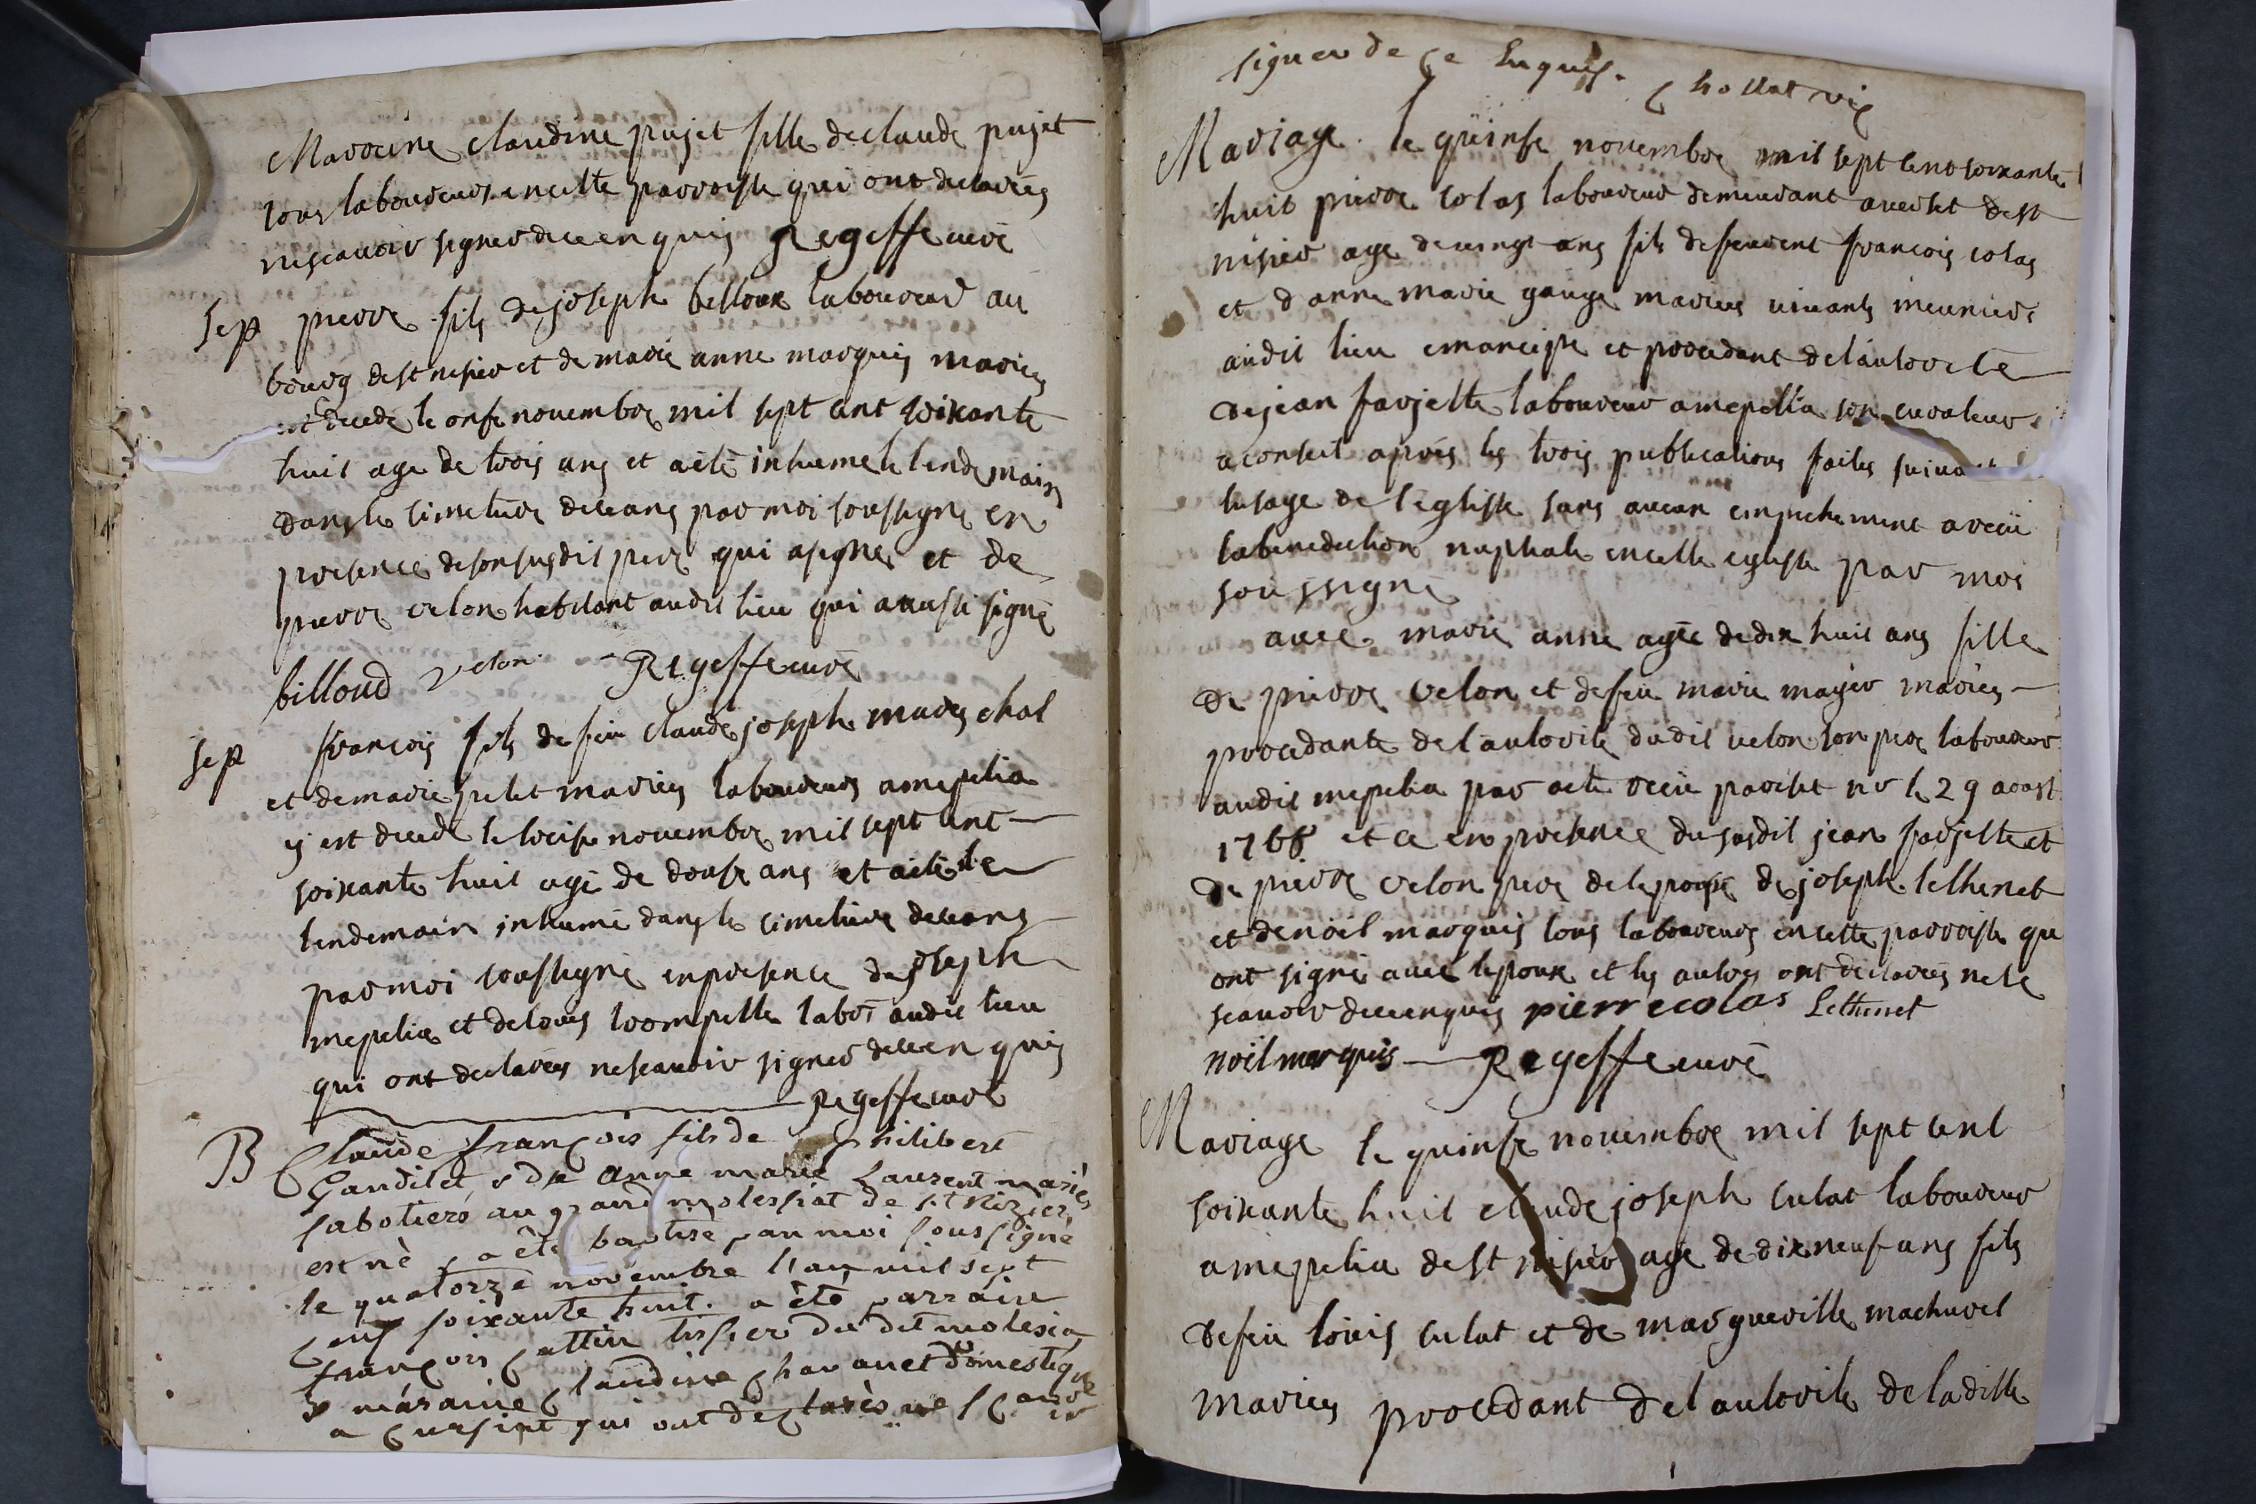 Maroeine claudine pujet fille de claude pujet
tous laboureurs en cette parroisse qui ont declarés
ne scavoir signer de ce enquis Regeffe curé
sep pierre fils de joseph belloux laboureur au
bourg de st nisier et de marie anne marquis mariés
est decedé le onse novembre mil sept cent soixante
huit agé de trois ans et a eté inhumé le lendemain
dans le cimetiere de ceans par moi soussigné en
presence de son susdit pere qui a signé et de
pierre velon habitant audit lieu qui a aussi signé
billoud velon Regeffe curé
sep francois fils de feu claude joseph mares chal
et de marie pelet mariés laboureurs a mepelia
y est decedé le treise novembre mil sept cent
soixante huit agé de douse ans et a eté le
lendemain inhumé dans le cimetiere de ceans
par moi soussigné en presence de joseph
mepelia et de louis trompette labor audit lieu
qui ont declarés ne scavoir signer de ce enquis
Regeffe curé
B Claude françois fils de philibert
Gandilet & de anne marie Laurent mariés
sabotiers au grand molessiat de st Nizier
est né & a été baptisé par moi soussigné
le quatorze novembre l'an mil sept
cent soixante huit. a été parrain
françois cattin tissier du dit molesia
& maraine claudine chavanet domestique
a cursiat qui ont declarés ne sçavoir
signer de ce enquis. chollat vic
Mariage. le quinse novembre mil sept cent soixante
huit pierre colas laboureur demeurant a de st
nisier agé de vingt ans fils de francois colas
et d anne marie gauge mariés vivants meuniers
audit lieu emancipé et procedant de l'autorité
de jean farjette laboureur a mepellia son curateur
a conseil aprés les trois publications faites suivant
l'usage de l'eglisse sans aucun empechement a reçü
la benediction nuptiale en cette eglisse par moi
soussigné
avec marie anne agée de dix huit ans fille
de pierre velon et de feue marie mayer mariés
procedante de l'autorité dudit velon son pere laboureur
audit mepelia par acte reçü nr le 29 aoust
1768 et ce en presence du susdit jean farjette et
de pierre velon pere de l'epouse de joseph lethenet
et de noel marquis tous laboureurs en cette parroisse qu
ont signé avec l'epoux et les autres ont declarés ne le
scavoir de ce enquis pierre colas Lethenet
noël marquis Regeffe curé
Mariage le quinse novembre mil sept cent
soixante huit claude joseph culat laboureur
a mepelia de st nisier agé de dix neuf ans fils
de feu louis culat et de margueritte machurel
mariés procedant de l autorité de la ditte